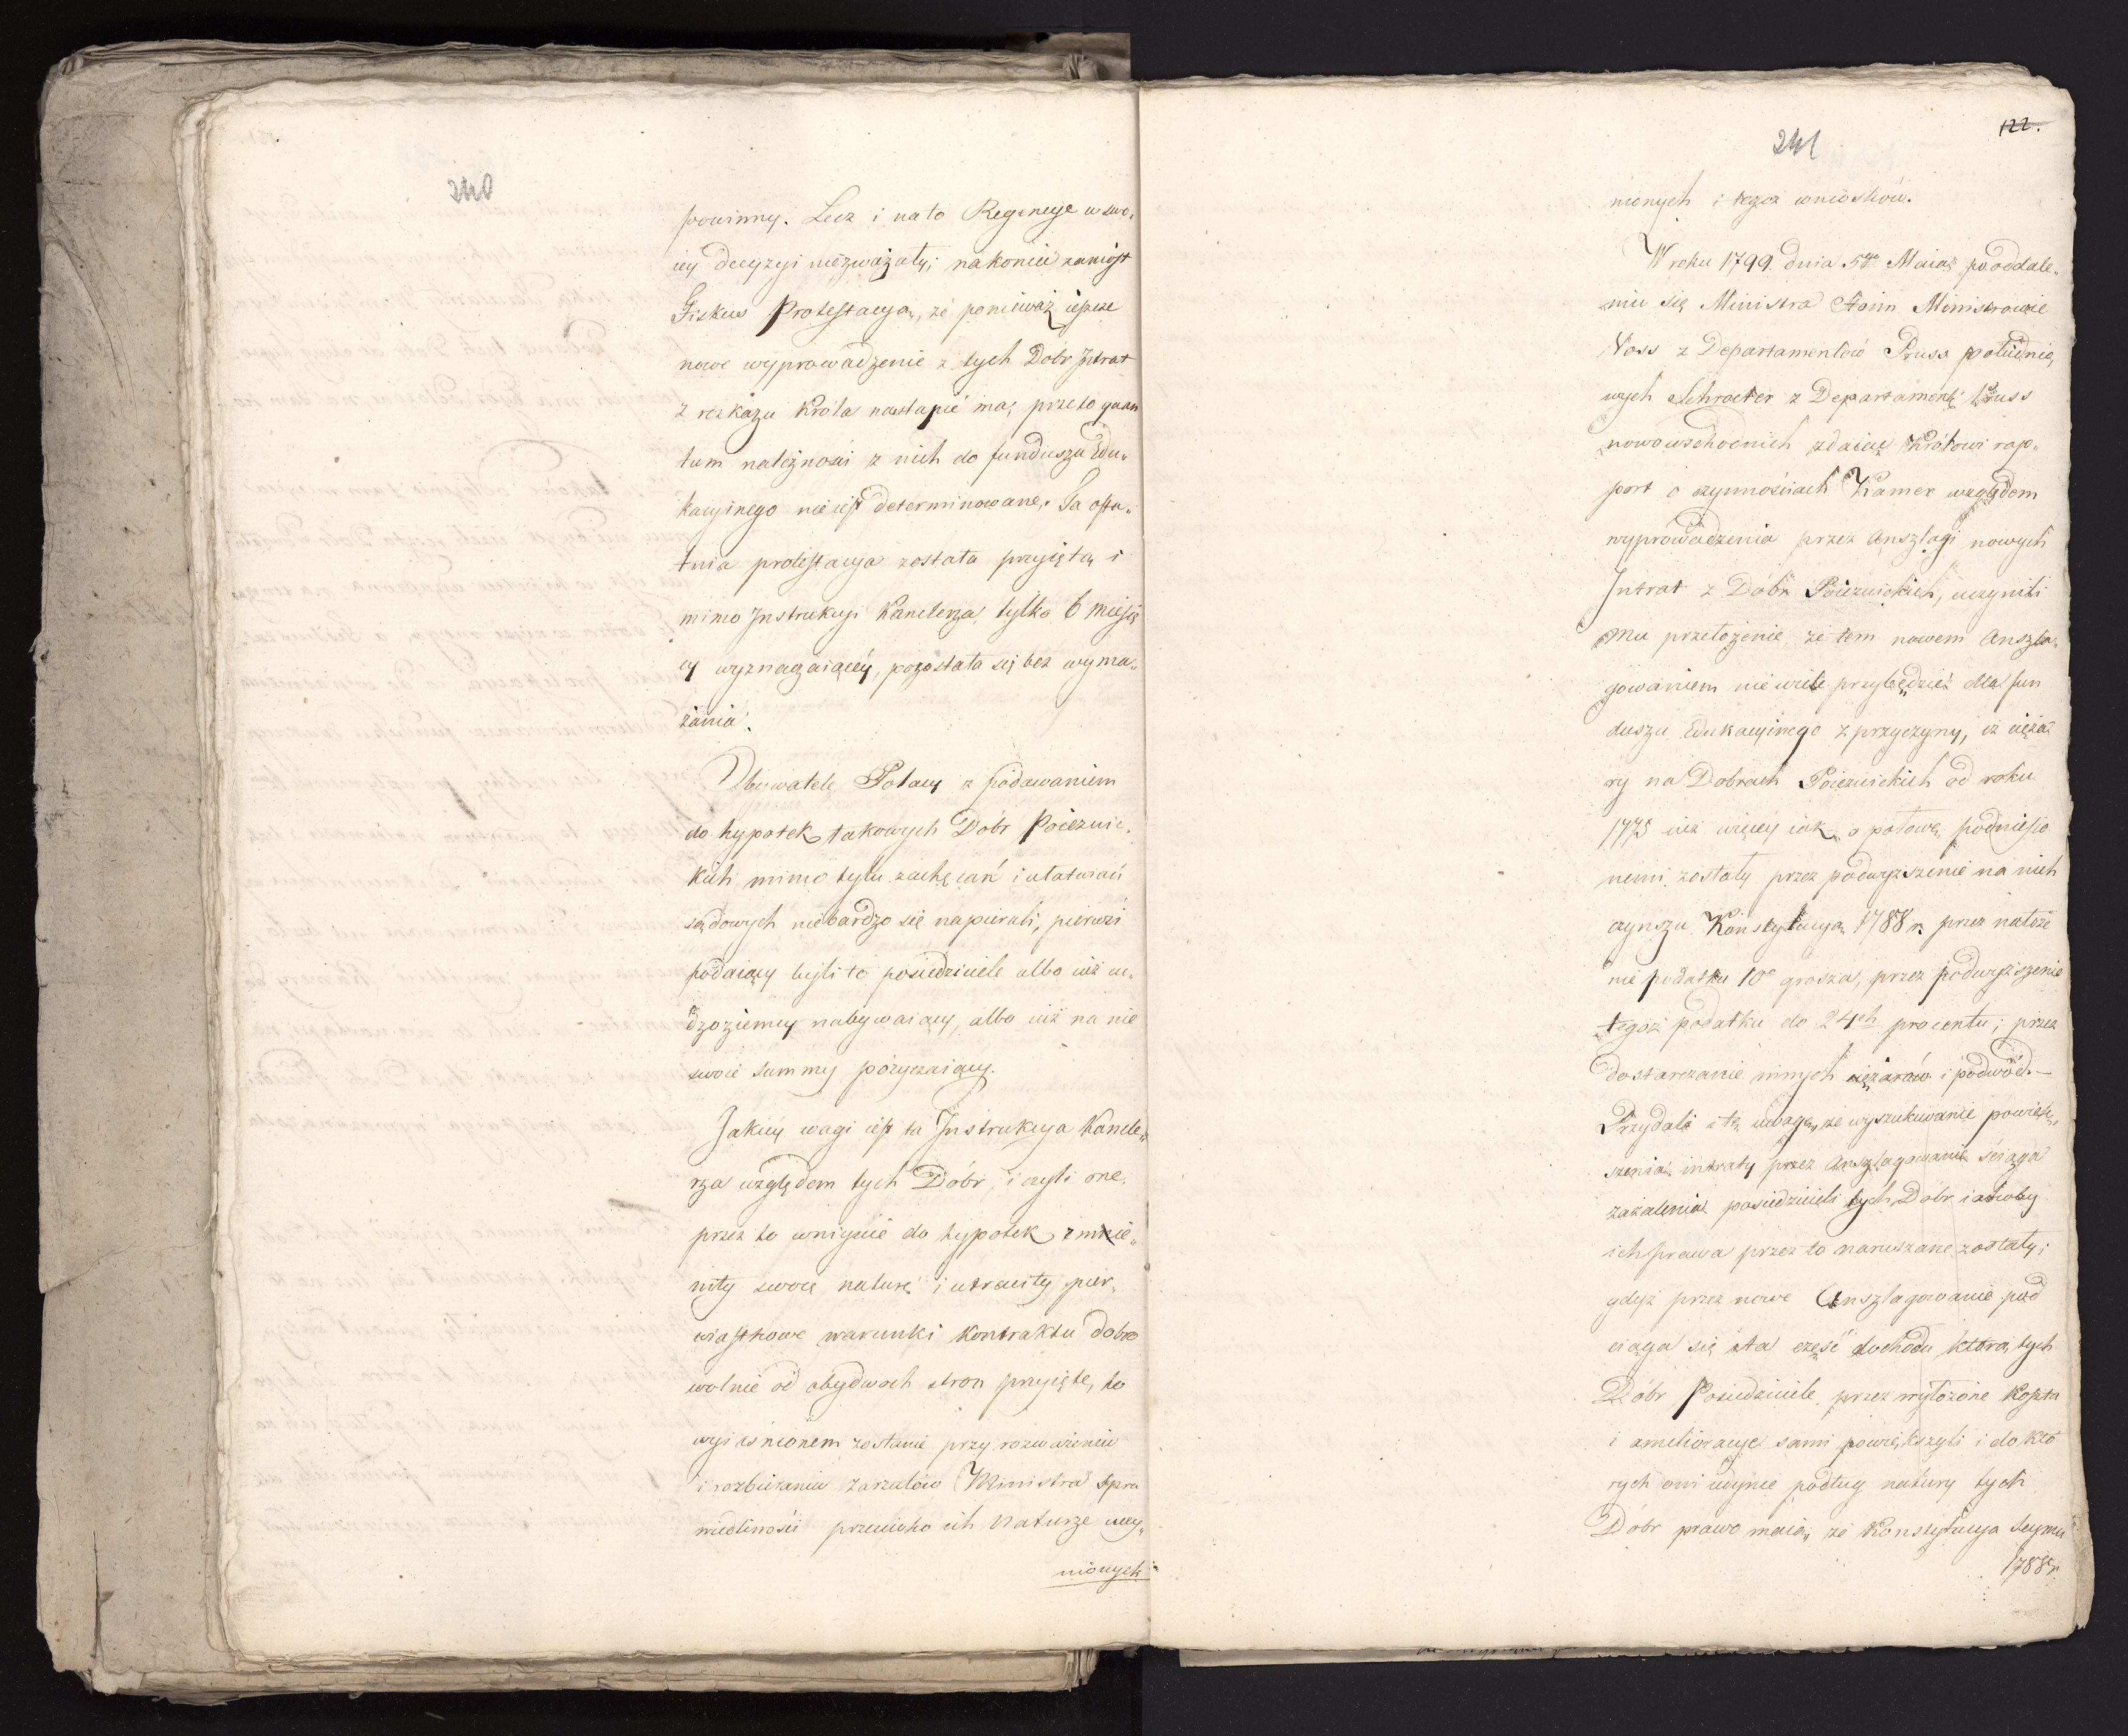 240
powinny. Lecz i na to Regencye w swo„
iey decyzyi niezważały; nakoniec zaniosł
Fiskus Protestacyą, że ponieważ ieszcze
nowe wyprowadzenie z tych Dóbr Intrat
z rozkazu Króla nastąpić ma, przeto quan
tum należności z nich do funduszu Edu„
kacyinego nie iest determinowane. Ta osta„
tnia protestacya została przyiętą i
mimo Instrukcyi Kanclerza, tylko 6 Miesię
cy wyznaczaiącey, pozostała się bez wyma„
zania.
Obywatele Polacy z podawaniem
do hypotek takowych Dóbr Poiezuic„
kich mimo tylu zachęcań i ułatwiań
sądowych niebardzo się napierali, pierwsi
podaiący byli to posiedziciele albo iuż cu„
dzoziemcy nabywaiący, albo iuż na nie
swoie summy pożyczaiący.
Jakiey wagi iest ta Instrukcya Kancle„
rza względem tych Dóbr, i czyli one,
przez to wniyście do hypotek zmie„
niły swoię naturę i utraciły pier„
wiastkowe warunki Kontraktu dobro
wolnie od obydwóch stron przyięte, to
wyiaśnionem zostanie przy rozważeniu
i rozbieraniu zarzutów Ministra Spra
wiedliwości przeciwko ich Naturze uczy„
nionych
122.
241
nionych i tegoż wniosków.
W roku 1799 dnia 5go Maia po oddale„
niu się Ministra Hoim Ministrowie
Voss z Departamentów Pruss południo„
wych Schroeter z Departament. Pruss
nowowschodnich zdaiąc Królowi rap„
port o czynnościach Kamer względem
wyprowadzenia przez Anszlagi nowych
Intrat z Dóbr Poiezuickich, uczynili
mu przełożenie, że tem nowem Anszla„
gowaniem nie wiele przybędzie dla fun
duszu Edukacyinego z przyczyny, iż cięża
ry na Dobrach Poiezuickich od roku
1775 iuż więcey iak o połowę podniesio
nemi zostały przez podwyższenie na nich
czynszu Konstytucyą 1788 r. przez nałoże
nie podatku 10o grosza, przez podwyższenie
tegoż podatku do 24ch procentu; przez
dostarczanie innych ciężarów i podwód.—
Przydali i tę uwagę, że wyszukiwanie powięk„
szenia intraty przez Anszlagowanie ściąga
zażalenia posiedzicieli tych Dóbr iakoby
ich prawa przez to naruszane zostały;
gdyż przez nowe Anszlagowanie pod
ciąga się i ta część dochodu którą tych
Dóbr Posiedziciele przez wyłożone koszta
i amelioracye sami powiększyli i do któ
rych oni iedynie podług natury tych
Dóbr prawo maią, że Konstytucya Seymu
1788 r.